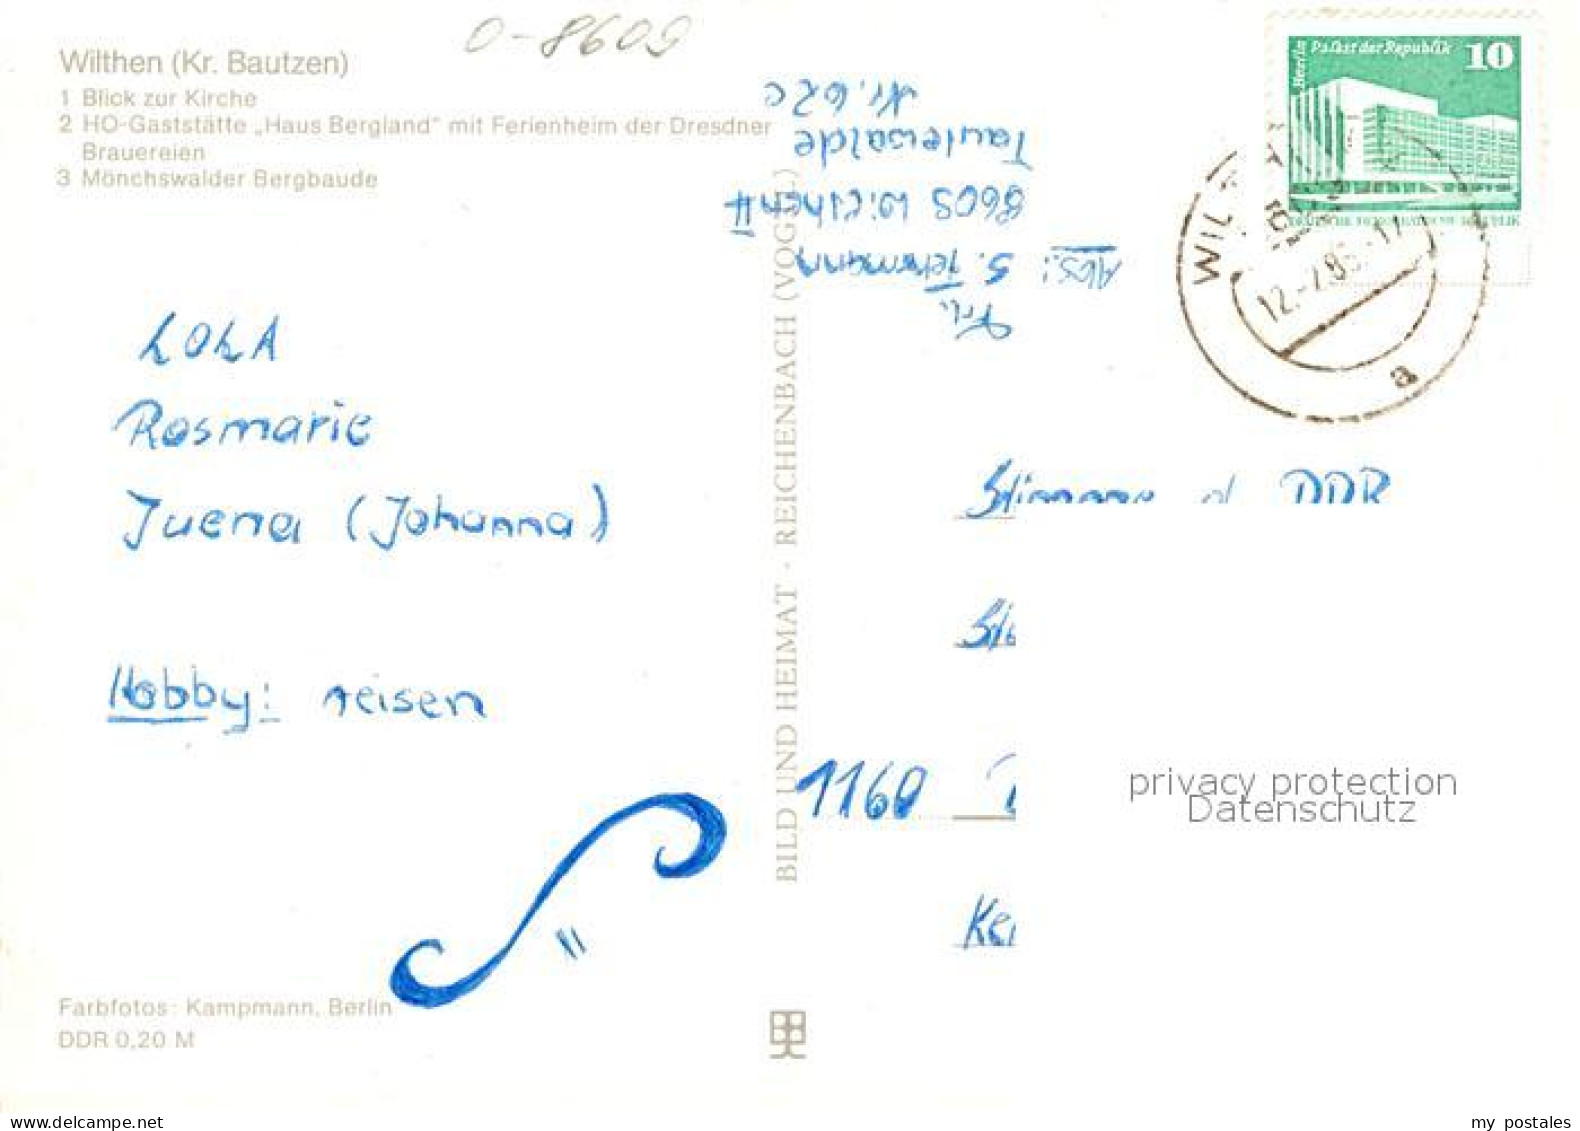 0-8609
Wilthen (Kr. Bautzen)
1 Blick zur Kirche
2 HO-Gaststätte „Haus Bergland" mit Ferienheim der Dresdner
Brauereien
3 Mönchswalder Bergbaude
LOLA
Rosmarie
Juena (Johanna)
Hobby: reisen
Farbfotos: Kampmann, Berlin
DDR 0,20 M
BILD UND HEIMAT · REICHENBACH (VOGTL.)
Abs.:
Frl.
8605 Wilthen II
Tautewalde
Nr. 62c
Berlin Palast der Republik 10
DEUTSCHE DEMOKRATISCHE REPUBLIK
WILT
12.-7.8
a
DDR
1160
privacy protection
Datenschutz
my postales
www.delcampe.net